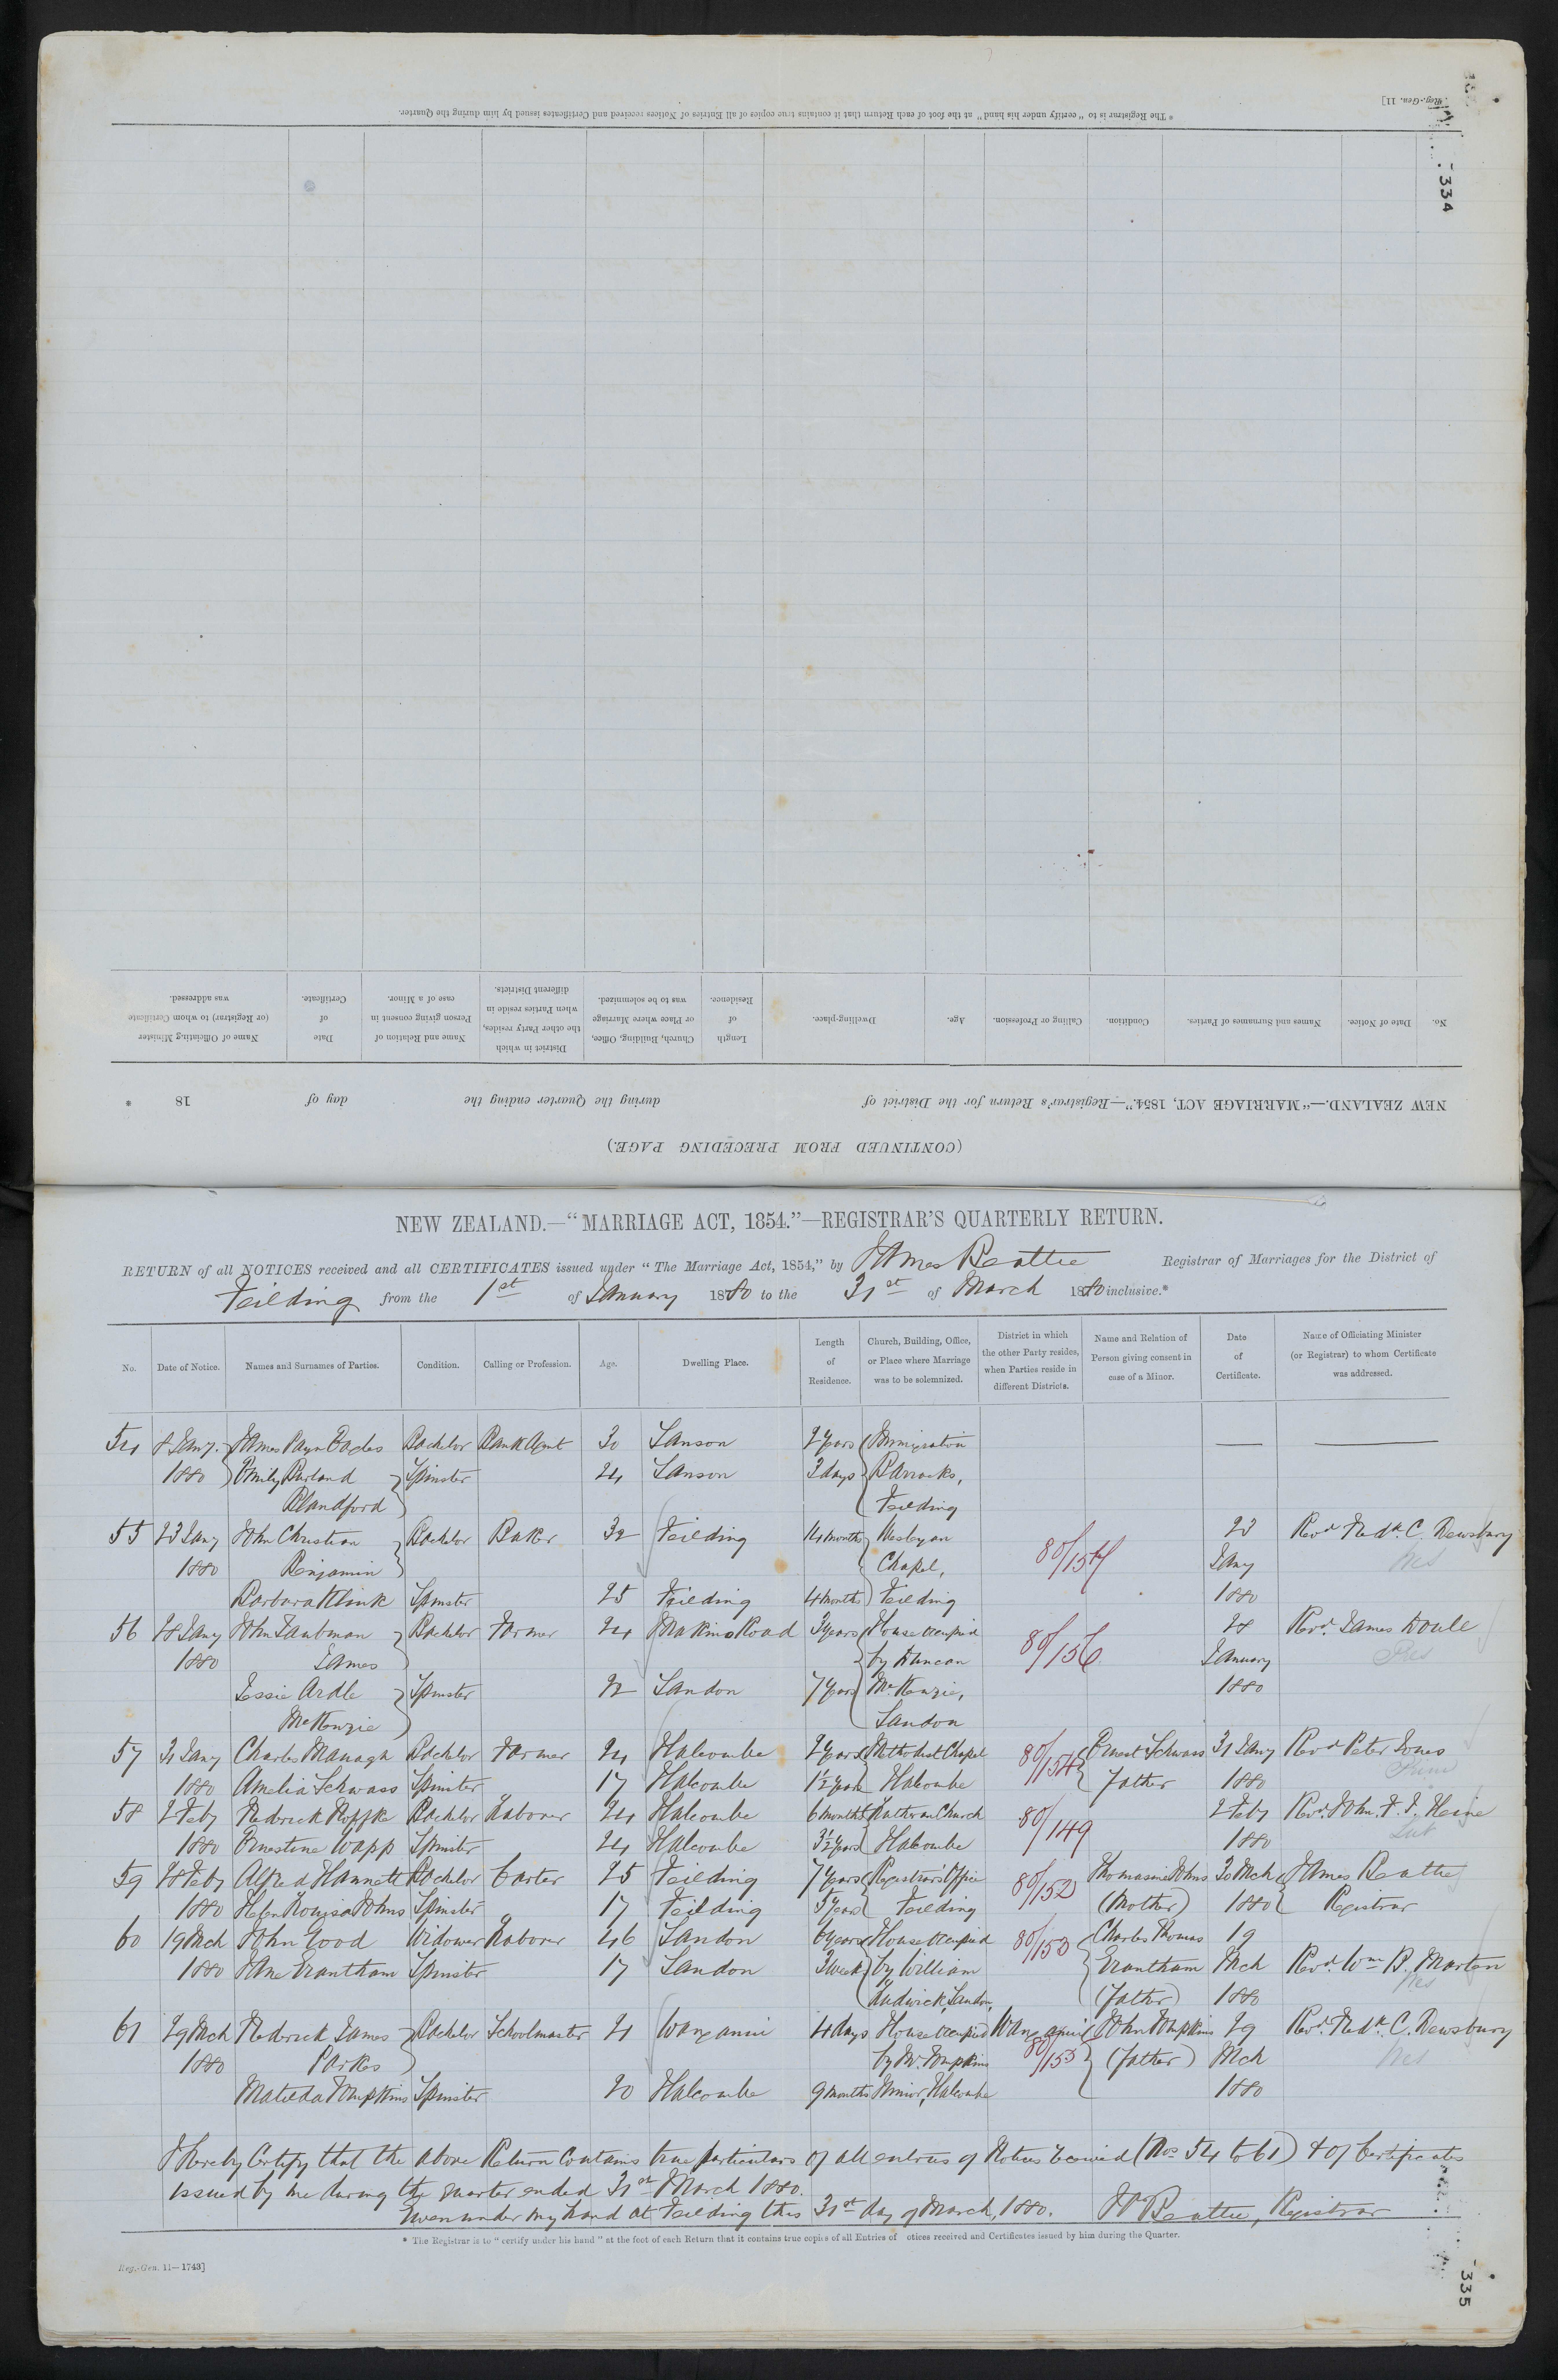 * The Registrar is to "certify under his hand" at the foot of each Return that it contains true copies of all Entries of Notices received and Certificates issued by him during the Quarter.
Reg.-Gen. 11]
334
(CONTINUED FROM PRECEDING PAGE.)
NEW ZEALAND.—"MARRIAGE ACT, 1854."—Registrar's Return for the District of during the Quarter ending the day of 18 *
No. Date of Notice. Names and Surnames of Parties. Condition. Calling or Profession. Age. Dwelling-place. Length of Residence. Church, Building, Office, or Place where Marriage was to be solemnized. District in which the other Party resides, when Parties reside in different Districts. Name and Relation of Person giving consent in case of a Minor. Date of Certificate. Name of Officiating Minister (or Registrar) to whom Certificate was addressed.
NEW ZEALAND.—"MARRIAGE ACT, 1854."—REGISTRAR'S QUARTERLY RETURN.
RETURN of all NOTICES received and all CERTIFICATES issued under "The Marriage Act, 1854," by James Beattie Registrar of Marriages for the District of
Feilding from the 1st of January 1880 to the 31st of March 1880 inclusive.*
No. Date of Notice. Names and Surnames of Parties. Condition. Calling or Profession. Age. Dwelling Place. Length of Residence. Church, Building, Office, or Place where Marriage was to be solemnized. District in which the other Party resides, when Parties reside in different Districts. Name and Relation of Person giving consent in case of a Minor. Date of Certificate. Name of Officiating Minister (or Registrar) to whom Certificate was addressed.
54 8 Jany. James Payn Eades Bachelor Bank Agent 30 Sanson 2 years Immigration
1880 Emily Burland Spinster 24 Sanson 3 days Barracks,
Blandford Feilding
55 23 Jany John Christian Bachelor Baker 32 Feilding 14 months Wesleyan 23 Revd. Fredk. C. Dewsbury
1880 Benjamin Chapel, 80/157 Jany Wes
Barbara Klink Spinster 25 Feilding 4 months Feilding 1880
56 28 Jany John Taubman Bachelor Farmer 24 Makino Road 3 years House occupied 80/156 28 Revd. James Doull
1880 James by Duncan January Pres
Jessie Ardle Spinster 22 Sandon 7 years McKenzie, 1880
McKenzie Sandon
57 31 Jany Charles Managh Bachelor Farmer 24 Halcombe 2 years Methodist Chapel 80/154 Ernest Schwass 31 Jany Revd Peter Jones
1880 Amelia Schwass Spinster 17 Halcombe 1½ years Halcombe Father 1880 Prim
58 2 Feby Frederick Roffke Bachelor Laborer 24 Halcombe 6 months Lutheran Church 80/149 2 Feby Revd. John. F. J. Heine
1880 Ernestine Wapp Spinster 24 Halcombe 3½ years Halcombe 1880 Lut
59 28 Feby Alfred Hannett Bachelor Carter 25 Feilding 7 years Registrar's Office 80/152 Thomasine Johns 30 Mch James Beattie
1880 Helen Louisa Johns Spinster 17 Feilding 5 years Feilding (Mother) 1880 Registrar
60 19 Mch John Good Widower Laborer 46 Sandon 6 years House occupied 80/150 Charles Thomas 19
1880 Jane Grantham Spinster 17 Sandon 3 weeks by William Grantham Mch Revd. Wm. B. Marten
Ludwick, Sandon, (father) 1880 Wes
61 29 Mch Frederick James Bachelor Schoolmaster 21 Wanganui 4 days House occupied Wanganui John Tompkins 29 Revd. Fredk. C. Dewsbury
1880 Parkes by Mr. Tompkins 80/155 (father) Mch Wes
Matilda Tompkins Spinster 20 Halcombe 9 months Junior, Halcombe 1880
I hereby Certify that the above Return Contains true particulars of all entries of Notices received (Nos 54 to 61) & of Certificates
issued by me during the quarter ended 31st March 1880.
Given under my hand at Feilding this 31st day of March, 1880. Js Beattie, Registrar
* The Registrar is to "certify under his hand" at the foot of each Return that it contains true copies of all Entries of otices received and Certificates issued by him during the Quarter.
Reg.-Gen. 11—1743]
335